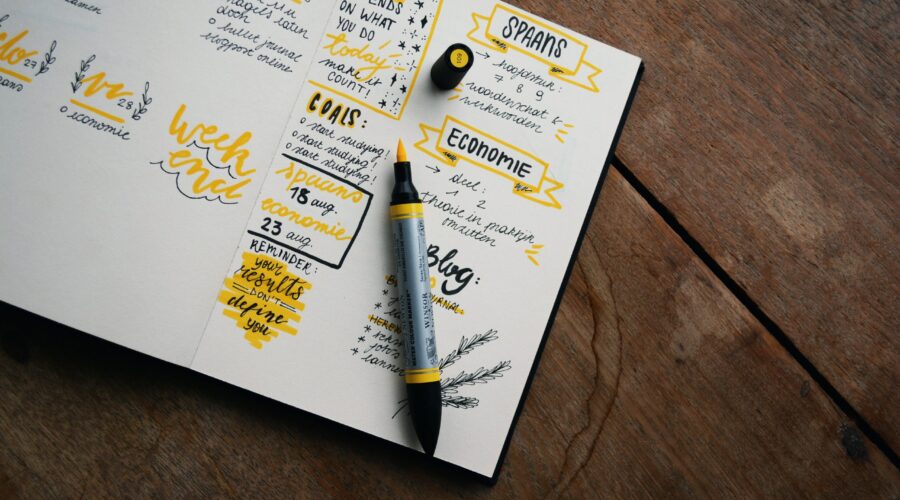 nagels laten
doen
o bullet journal
blogpost online
27
vr 28
o economie
Week
end
ON WHAT
YOU DO
today
make it
COUNT!
GOALS:
o start studying!
o start studying!
o start studying!
spaans
18 aug.
economie
23 aug.
REMINDER:
your
results
DON'T
define
you
SPAANS
→ hoofdstuk
7 8 9
woordenschat &
werkwoorden
ECONOMIE
→ deel:
1 2
theorie in praktijk
omzetten
Blog:
WINSOR